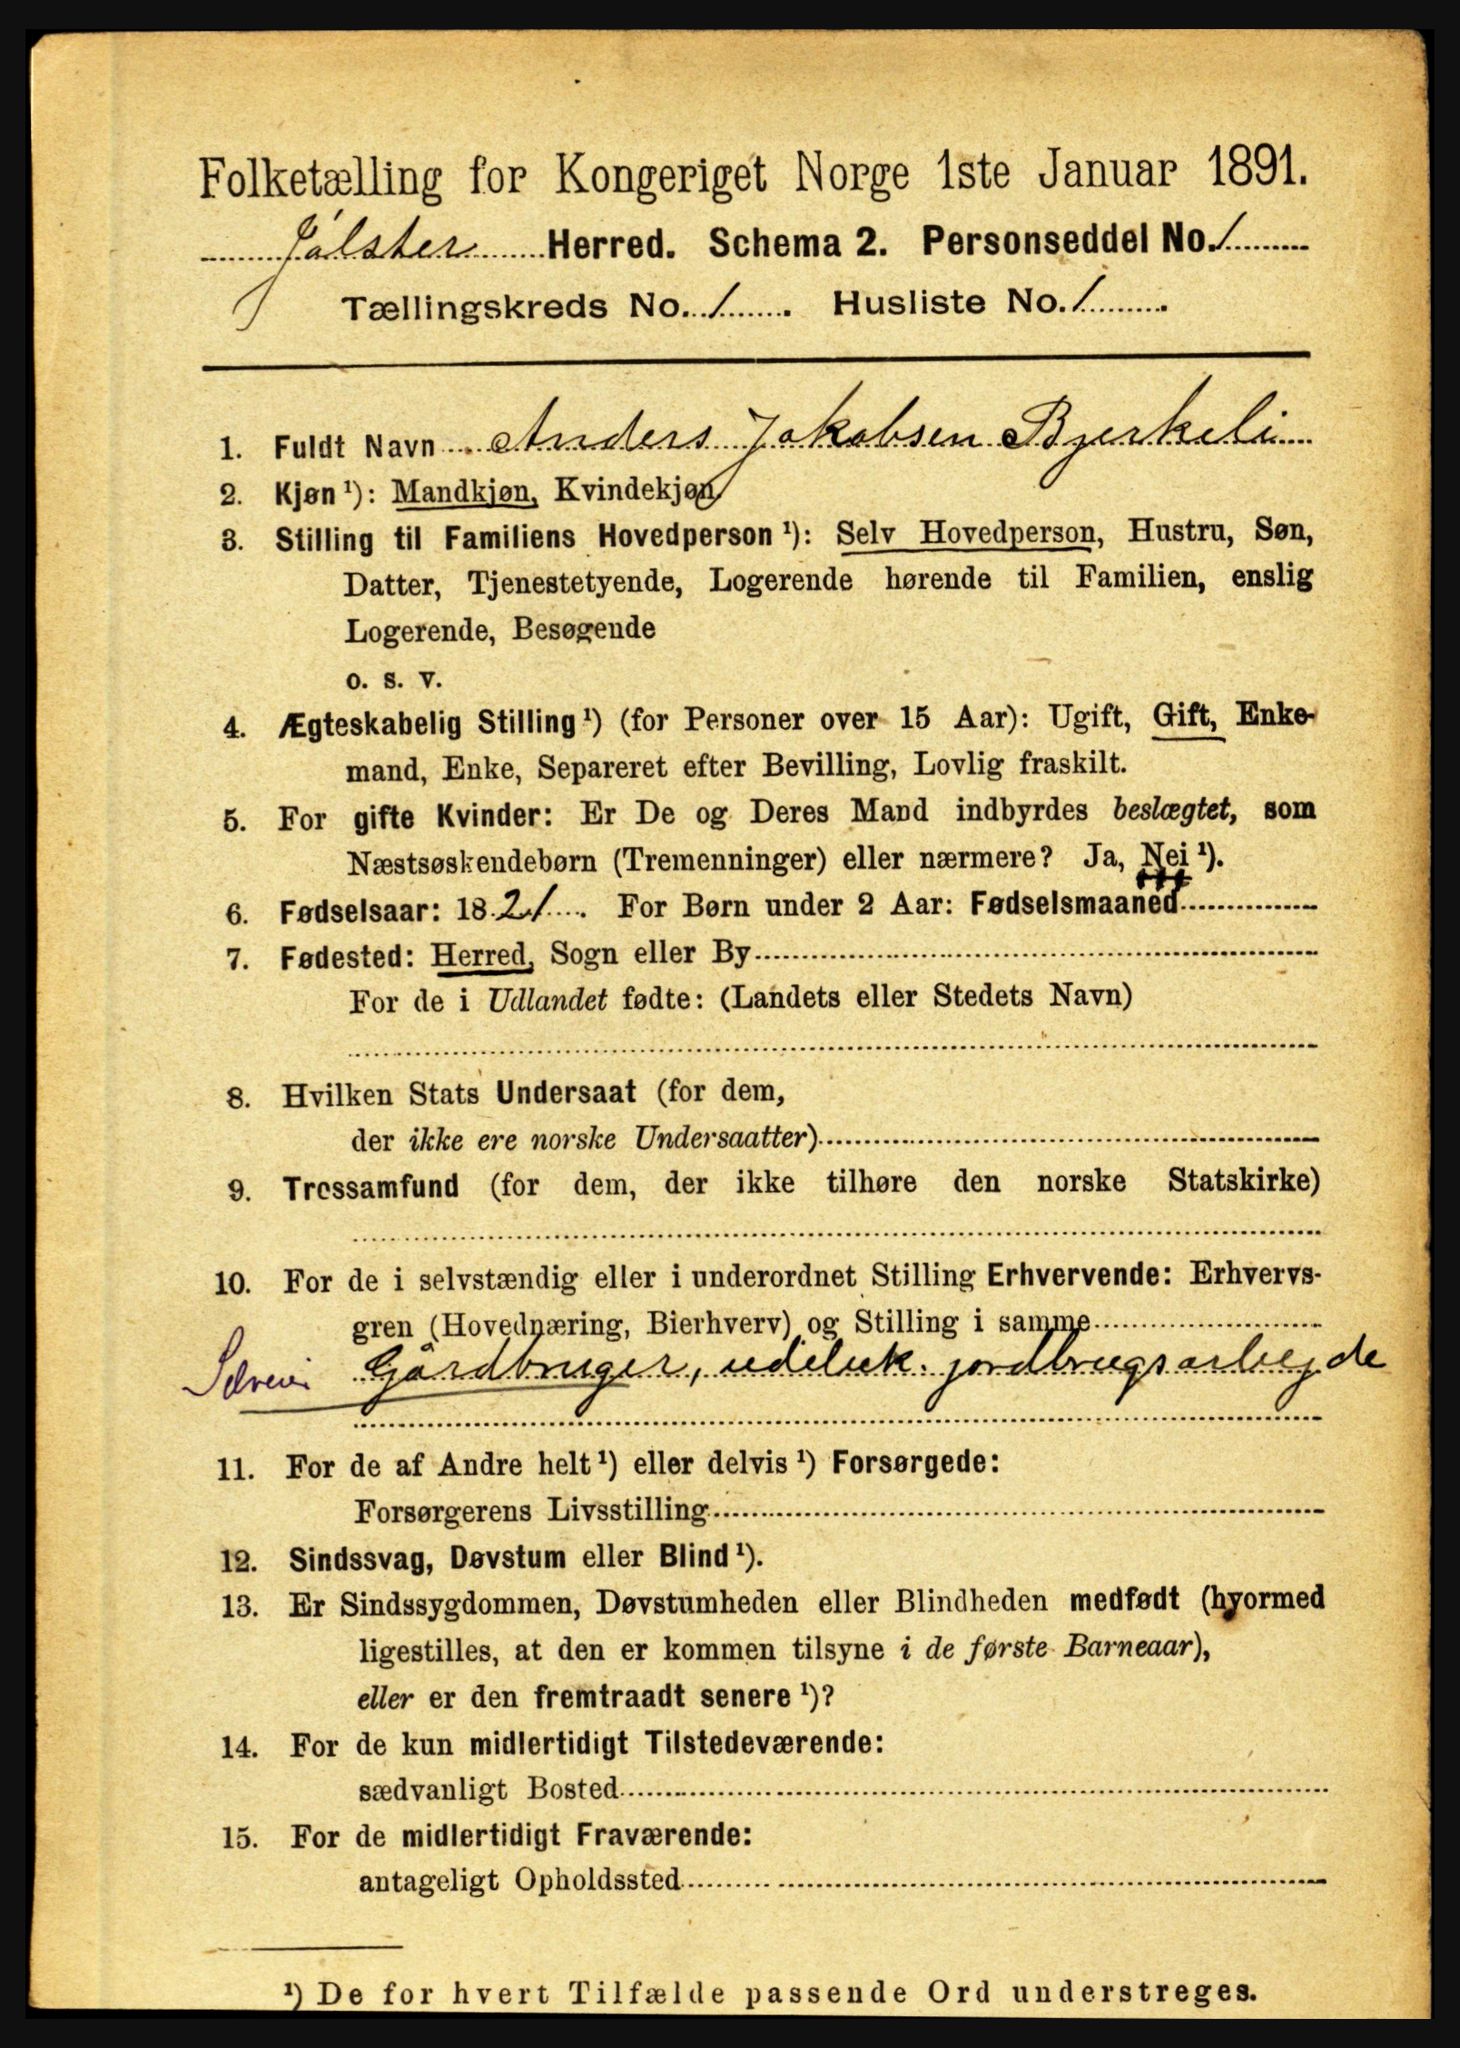 Folketælling for Kongeriget Norge 1ste Januar 1891.
Jølster Herred. Schema 2. Personseddel No. 1
Tællingskreds No. 1. Husliste No. 1.
1. Fuldt Navn Anders Jakobsen Bjerkeli
2. Kjøn ¹): Mandkjøn, Kvindekjøn
3. Stilling til Familiens Hovedperson ¹): Selv Hovedperson, Hustru, Søn,
Datter, Tjenestetyende, Logerende hørende til Familien, enslig
Logerende, Besøgende
o. s. v.
4. Ægteskabelig Stilling ¹) (for Personer over 15 Aar): Ugift, Gift, Enke-
mand, Enke, Separeret efter Bevilling, Lovlig fraskilt.
5. For gifte Kvinder: Er De og Deres Mand indbyrdes beslægtet, som
Næstsøskendebørn (Tremenninger) eller nærmere? Ja, Nei ¹).
6. Fødselsaar: 1821. For Børn under 2 Aar: Fødselsmaaned
7. Fødested: Herred, Sogn eller By
For de i Udlandet fødte: (Landets eller Stedets Navn)
8. Hvilken Stats Undersaat (for dem,
der ikke ere norske Undersaatter)
9. Trossamfund (for dem, der ikke tilhøre den norske Statskirke)
10. For de i selvstændig eller i underordnet Stilling Erhvervende: Erhvervs-
gren (Hovednæring, Bierhverv) og Stilling i samme
Selveier Gårdbruger, jordbrugsarbejde
11. For de af Andre helt ¹) eller delvis ¹) Forsørgede:
Forsørgerens Livsstilling
12. Sindssvag, Døvstum eller Blind ¹).
13. Er Sindssygdommen, Døvstumheden eller Blindheden medfødt (hvormed
ligestilles, at den er kommen tilsyne i de første Barneaar),
eller er den fremtraadt senere ¹)?
14. For de kun midlertidigt Tilstedeværende:
sædvanligt Bosted
15. For de midlertidigt Fraværende:
antageligt Opholdssted
¹) De for hvert Tilfælde passende Ord understreges.